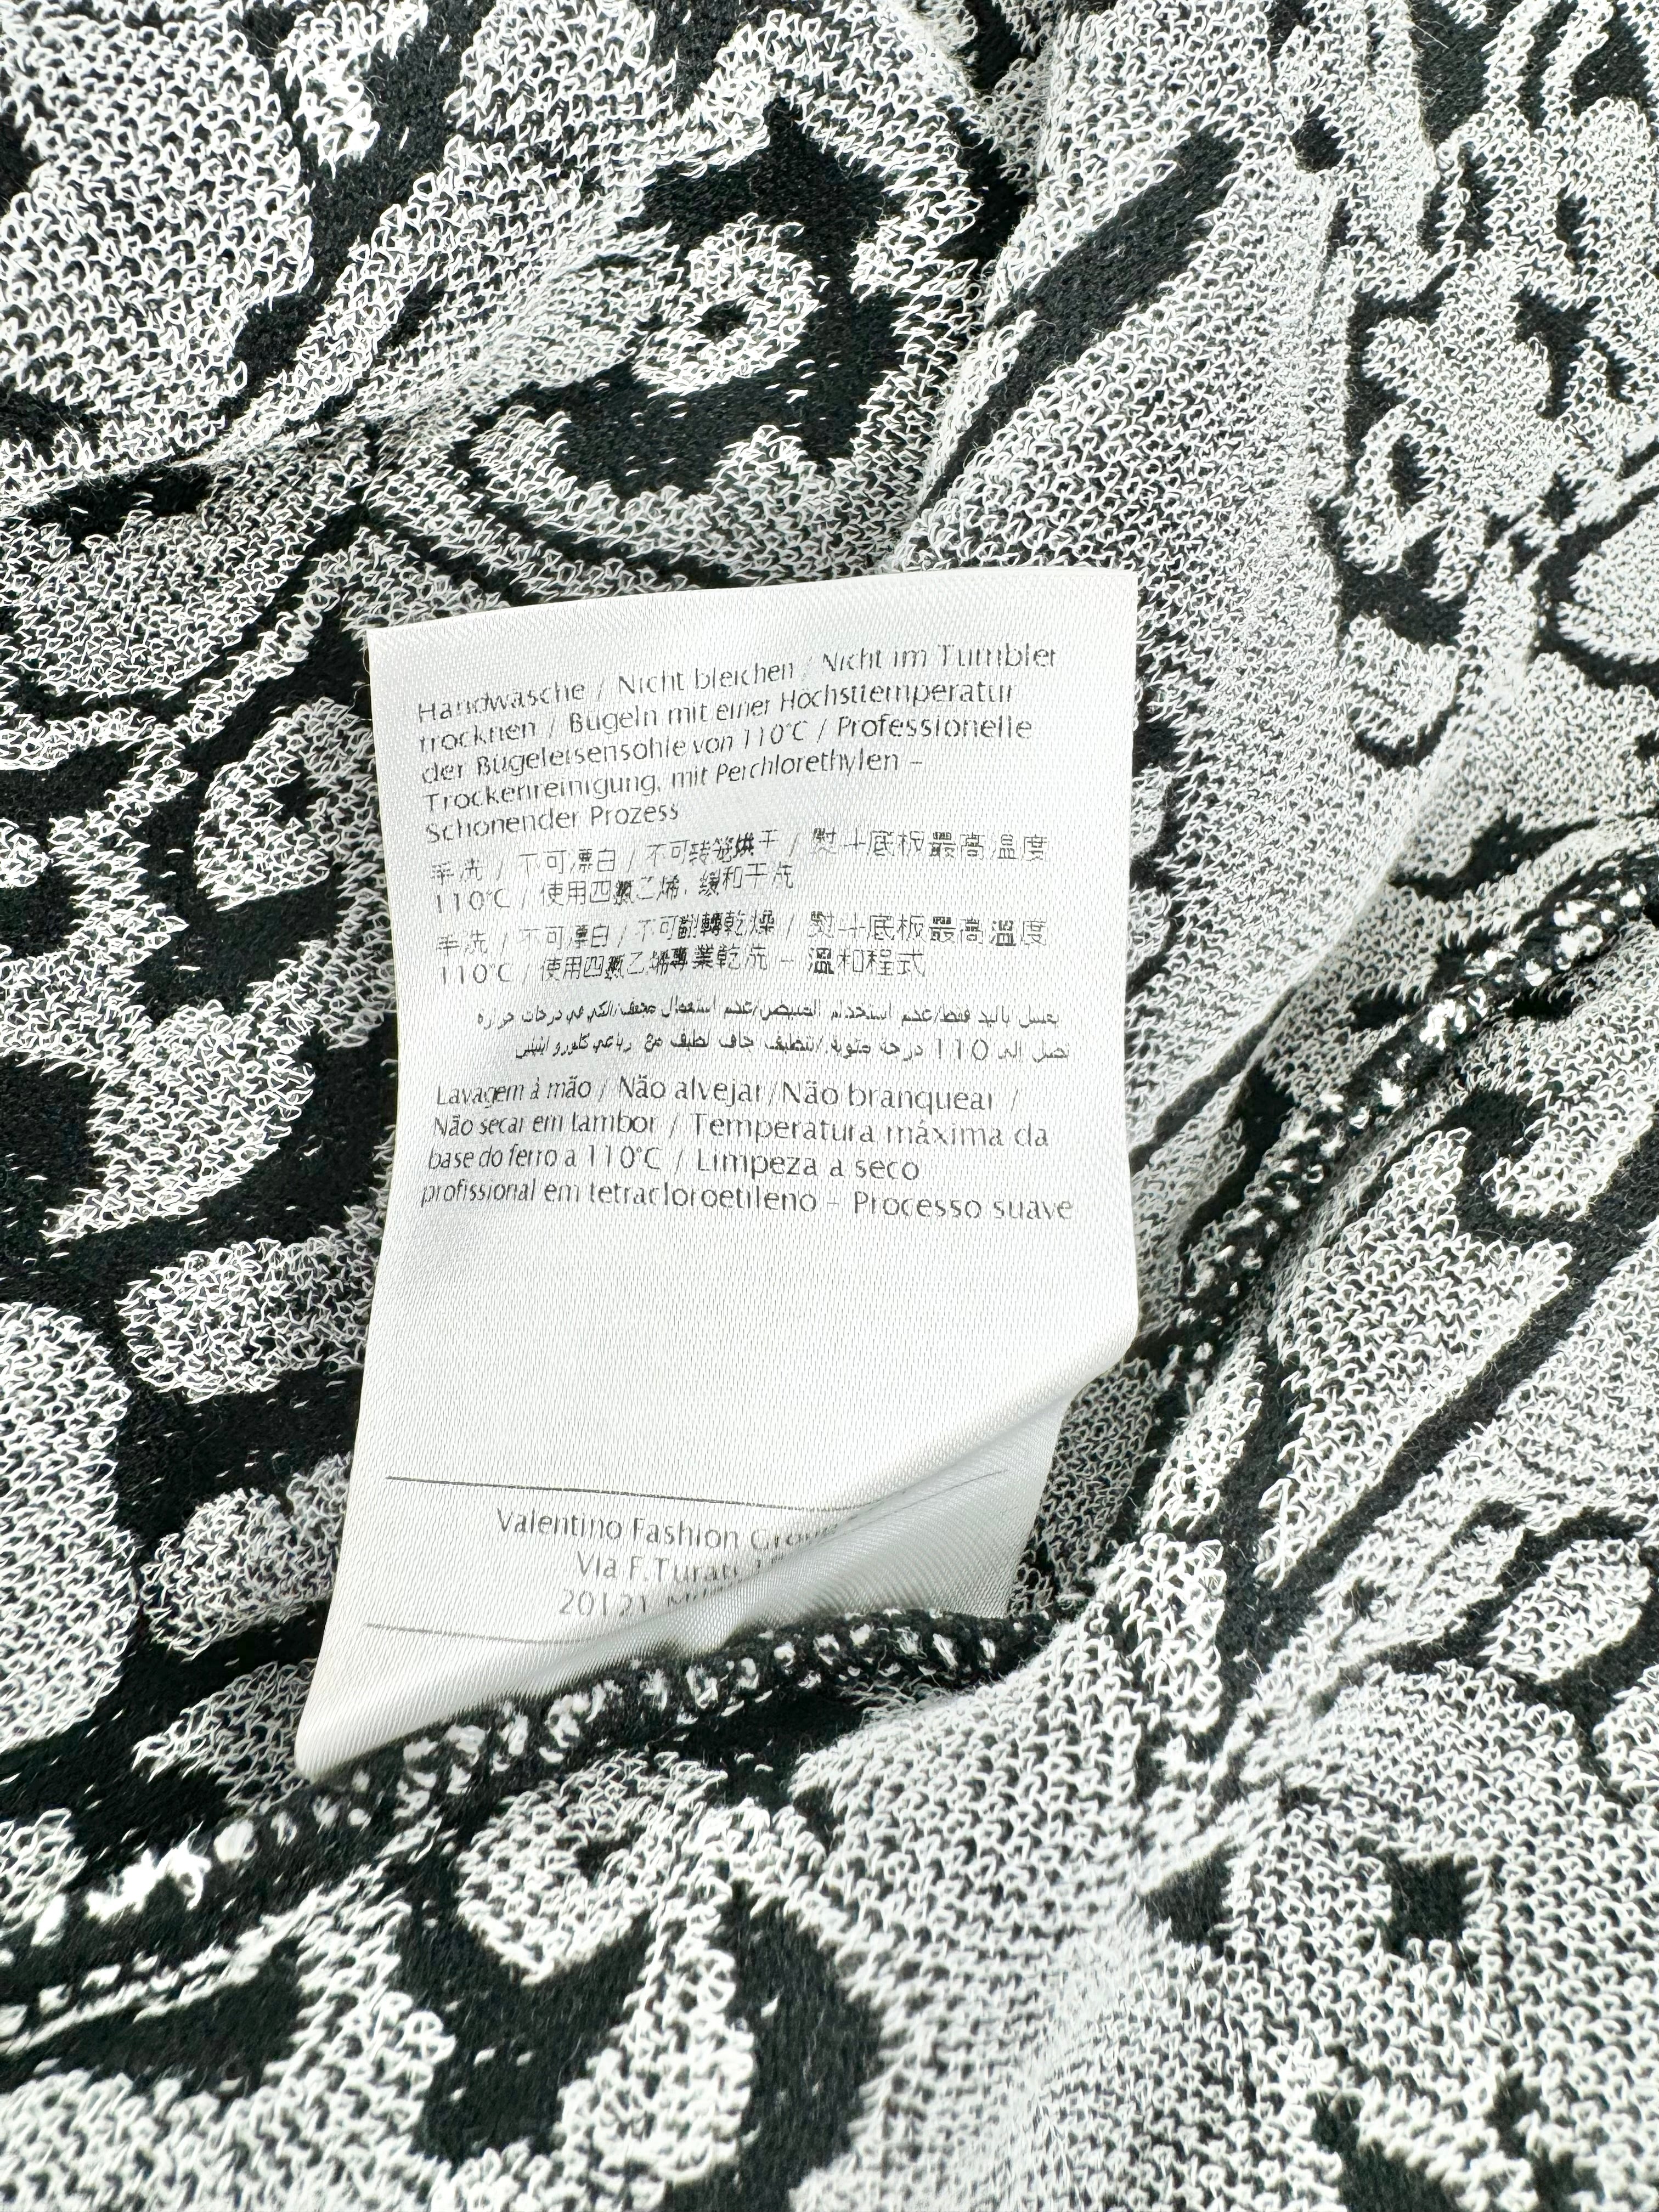 Handwäsche / Nicht bleichen / Nicht im Tumbler
trocknen / Bügeln mit einer Höchsttemperatur
der Bügeleisensohle von 110°C / Professionelle
Trockenreinigung, mit Perchlorethylen –
Schonender Prozess
手洗 / 不可漂白 / 不可转笼烘干 / 熨斗底板最高温度
110°C / 使用四氯乙烯, 缓和干洗
手洗 / 不可漂白 / 不可翻轉乾燥 / 熨斗底板最高溫度
110°C / 使用四氯乙烯專業乾洗 – 溫和程式
يغسل باليد فقط/عدم استخدام المبيض/عدم استعمال مجفف/الكي في درجات حرارة
تصل الى 110 درجة مئوية/تنظيف جاف لطيف مع رباعي كلورو ايثيلين
Lavagem à mão / Não alvejar/Não branquear /
Não secar em tambor / Temperatura máxima da
base do ferro a 110°C / Limpeza a seco
profissional em tetracloroetileno – Processo suave
Valentino Fashion Group
Via F.Turati
20121